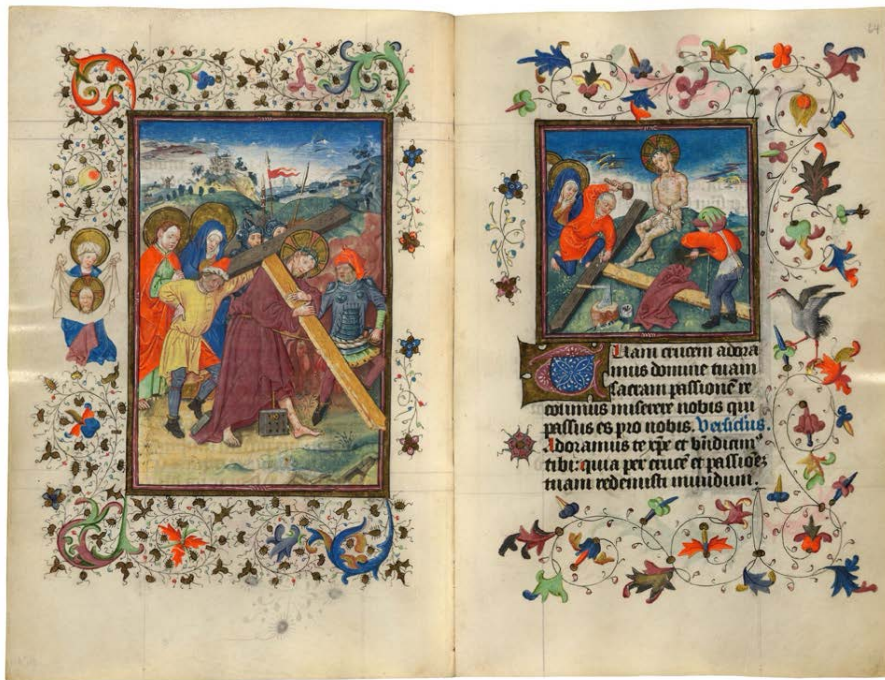 Tuam crucem adora
mus domine tuam
sacram passionē re
colimus miserere nobis qui
passus es pro nobis. Versiclus.
Adoramus te xpe et bn̄dicimꝰ
tibi: quia per crucē et passionē
tuam redemisti mundum.